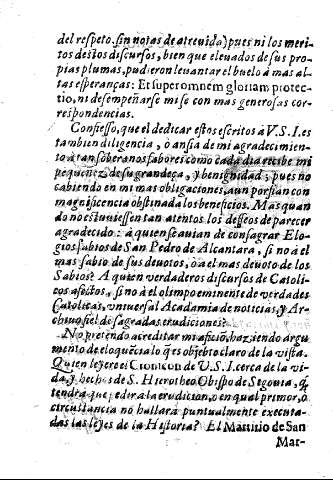 del respeto, sin notas de atrevida) pues ni los meri-
tos destos discursos, bien que eleuados de sus pro-
pias plumas, pudieron leuantar el buelo à mas al-
tas esperanças: Et super omnem gloriam protec-
tio, ni desempeñarse mi fe con mas generosas cor-
respondencias.
Confiesso, que el dedicar estos escritos à V. S. I. es
tambien diligencia, ò ansia de mi agradecimien-
to à tan soberanos fabores como cada dia recibe mi
pequeñez de su grandeça, y benignidad; pues no
cabiendo en mi mas obligaciones, aun porfian con
magnificencia obstinada los beneficios. Mas quan
do no estuuiessen tan atentos los desseos de parecer
agradecido: à quien se auian de consagrar Elo-
gios sabios de San Pedro de Alcantara, si no à el
mas sabio de sus deuotos, ò à el mas deuoto de los
Sabios? A quien verdaderos discursos de Catoli-
cos afectos, si no à el olimpo eminente de verdades
Catolicas, vniuersal Acadamia de noticias, y Ar-
chiuo fiel de sagradas erudiciones?
No pretendo acreditar mi aficiõ, haziendo argu
mento de eloquẽcia lo q̃ es objeto claro de la vista.
Quien leyere el Cronicon de V. S. I. cerca de la vi-
da, y hechos de S. Hierotheo Obispo de Segouia, q̃
tendrà que pedir a la erudicion, o en qual primor, ò
circũstancia no hallarà puntualmente executa-
das las leyes de la Historia? El Martirio de San
Mar-